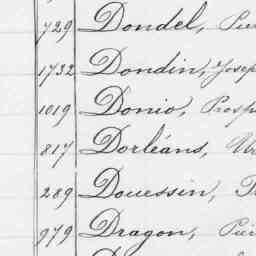 729 Dondel,
1732 Dondin, Josep
1019 Donio, Prosp
817 Dorléans,
289 Douessin,
979 Dragon, Pier